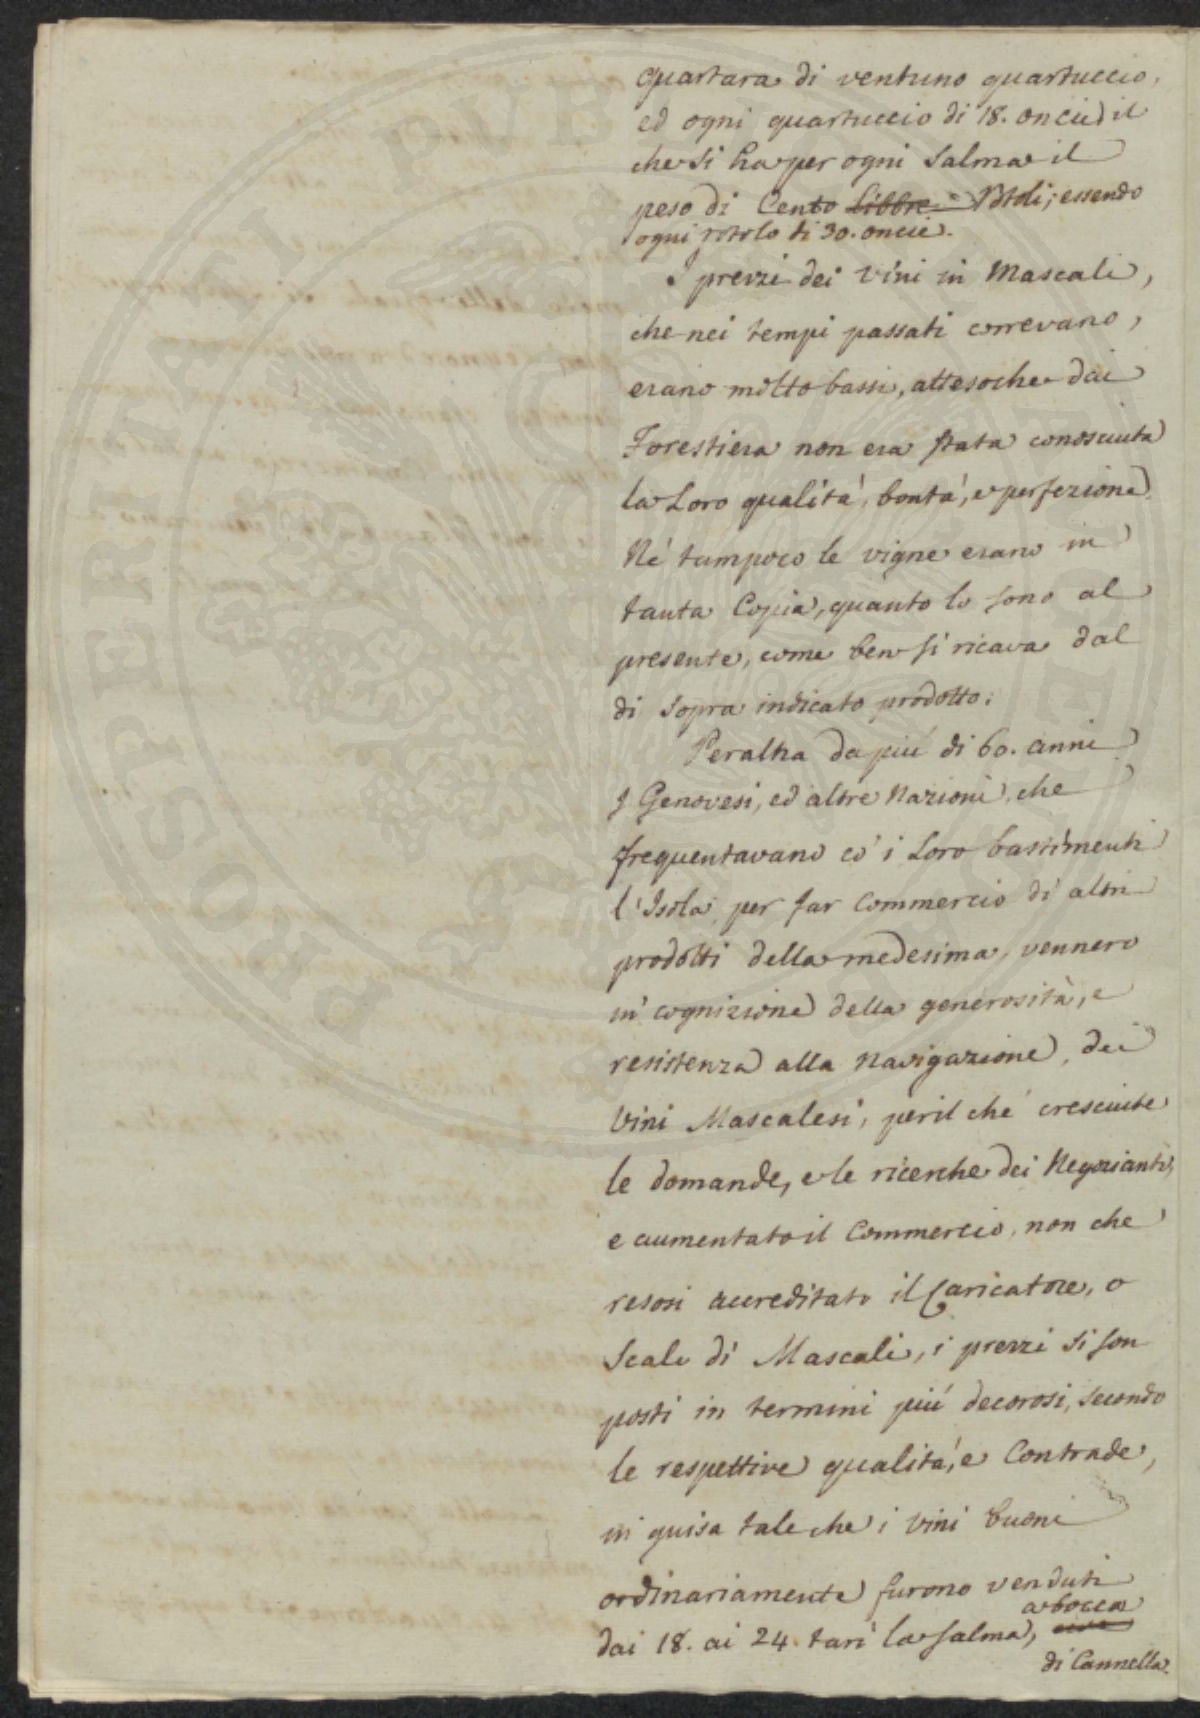 quartara di ventuno quartuccio,
ed ogni quartuccio di 18. oncie) il
che si ha per ogni Salma il
peso di Cento Libbre Rotoli; essendo
ogni rotolo di 30. oncie.
I prezzi dei Vini in Mascali,
che nei tempi passati correvano,
erano molto bassi, attesoche dai
Forestiera non era stata conosciuta
la Loro qualitá, bontá, e perfezione
Né tampoco le vigne erano in
tanta Copia, quanto lo sono al
presente, come ben si ricava dal
di sopra indicato prodotto.
Peraltra da piú di 60. anni
I Genovesi, ed altre Nazioni, che
frequentavano co' i Loro bastimenti
l'Isola per far Commercio di altri
prodotti della medesima, vennero
in cognizione della generositá, e
resistenza alla navigazione, dei
Vini Mascalesi, peril ché cresciute
le domande, e le ricerche dei Negozianti,
e aumentato il Commercio, non che
resosi accreditato il Caricatore, o
Scalo di Mascali, i prezzi si son
posti in termini piú decorosi, secondo
le respettive qualitá, e Contrade,
in guisa tale che i Vini buoni
ordinariamente furono venduti
a bocca
dai 18. ai 24 tarì la salma,
di Cannella.
PROSPERITATI PUBLICAE AUGENDAE